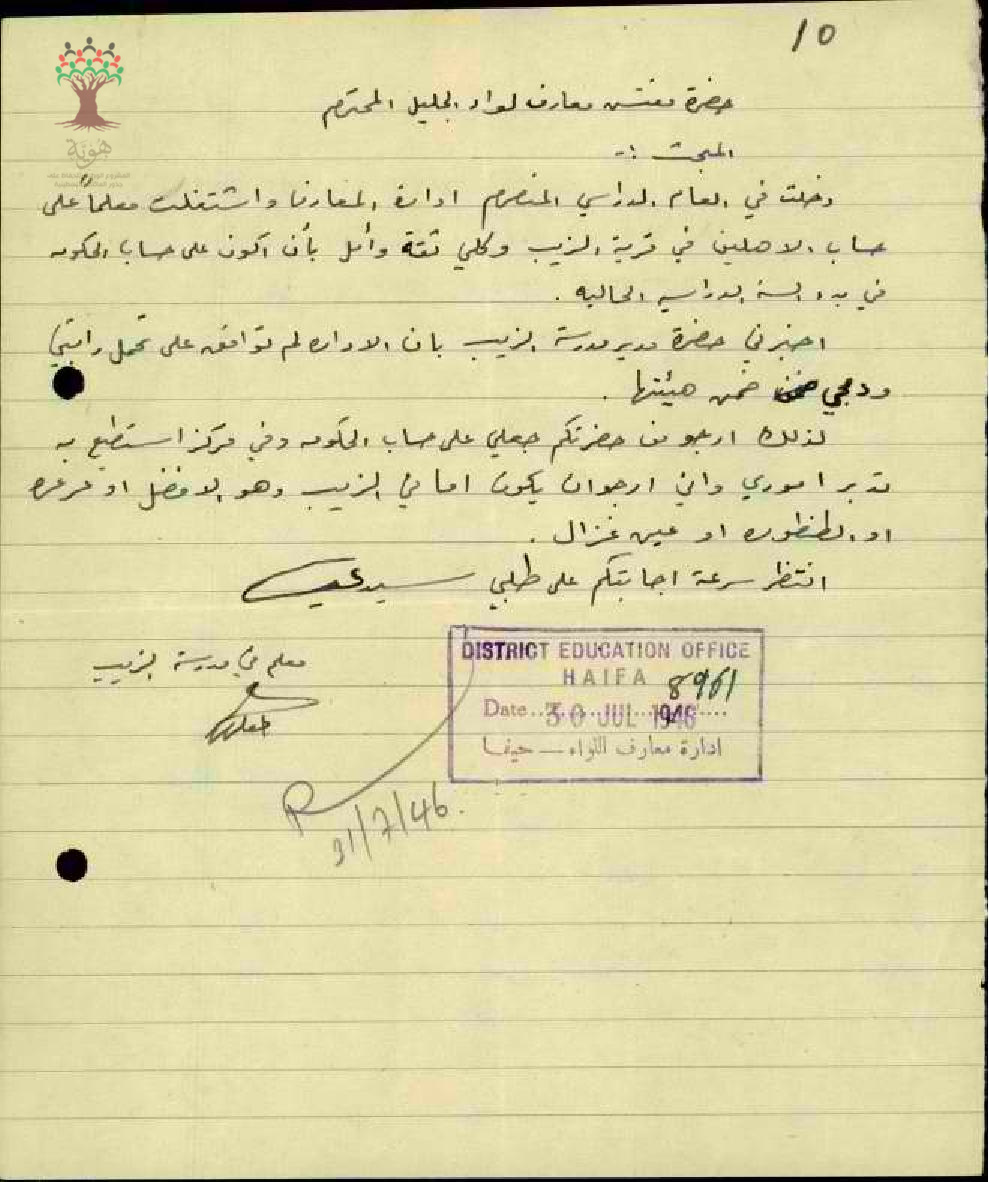 10
هوية
حضرة مفتش معارف لواء الجليل المحترم
المبحث :-
دخلت في العام الدراسي المنصرم ادارة المعارف واشتغلت معلماً على
حساب الاهلين في قرية الزيب وكلي ثقة وأمل بأن اكون على حساب الحكومه
في بدء السنه الدراسيه الحاليه .
اخبرني حضرة مدير مدرسة الزيب بان الاداره لم توافق على تحمل راتبي
ودمجي ضمن هيئتها .
لذلك ارجو من حضرتكم جعلي على حساب الحكومه وفي مركز استطيع به
تدبر اموري واني ارجو ان يكون اما في الزيب وهو الافضل او عرعره
او الطنطوره او عين غزال .
انتظر سرعة اجابتكم على طلبي سيدي
معلم في مدرسة الزيب
DISTRICT EDUCATION OFFICE
HAIFA
8961
Date 30 JUL 1946
ادارة معارف اللواء — حيفا
31/7/46.